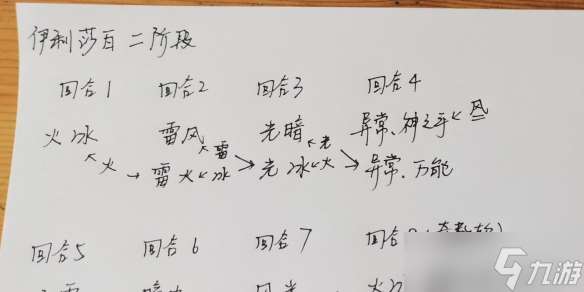 伊利莎白 二阶段
回合1 回合2 回合3 回合4
火冰 雷风 光暗 异常、神之手 ↙ 风
↖火 ↖雷 ↖光
→ 雷 火 ↙ 冰 → 光 冰 ↙ 火 → 异常、万能
回合5 回合6 回合7 回合
九游